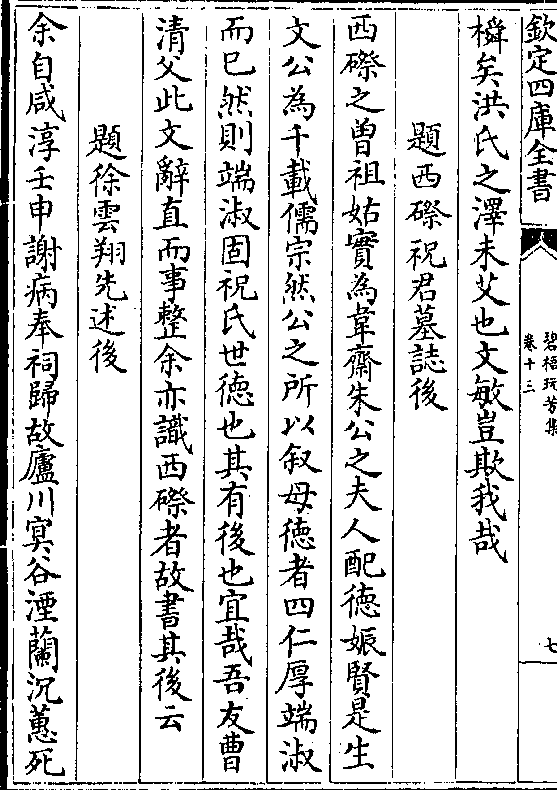 欽定四庫全書
碧梧玩芳集
卷十三
七
橓矣洪氏之澤未艾也文敏豈欺我哉
題西磜祝君墓誌後
西磜之曽祖姑實為韋齋朱公之夫人配徳娠賢是生
文公為千載儒宗然公之所以叙母徳者四仁厚端淑
而已然則端淑固祝氏世徳也其有後也宜哉吾友曹
清父此文辭直而事整余亦識西磜者故書其後云
題徐雲翔先述後
余自咸淳壬申謝病奉祠歸故廬川冥谷湮蘭沉蕙死